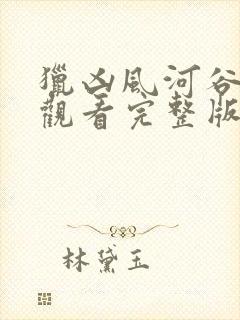 獵凶風河谷
觀看完整版
林黛玉